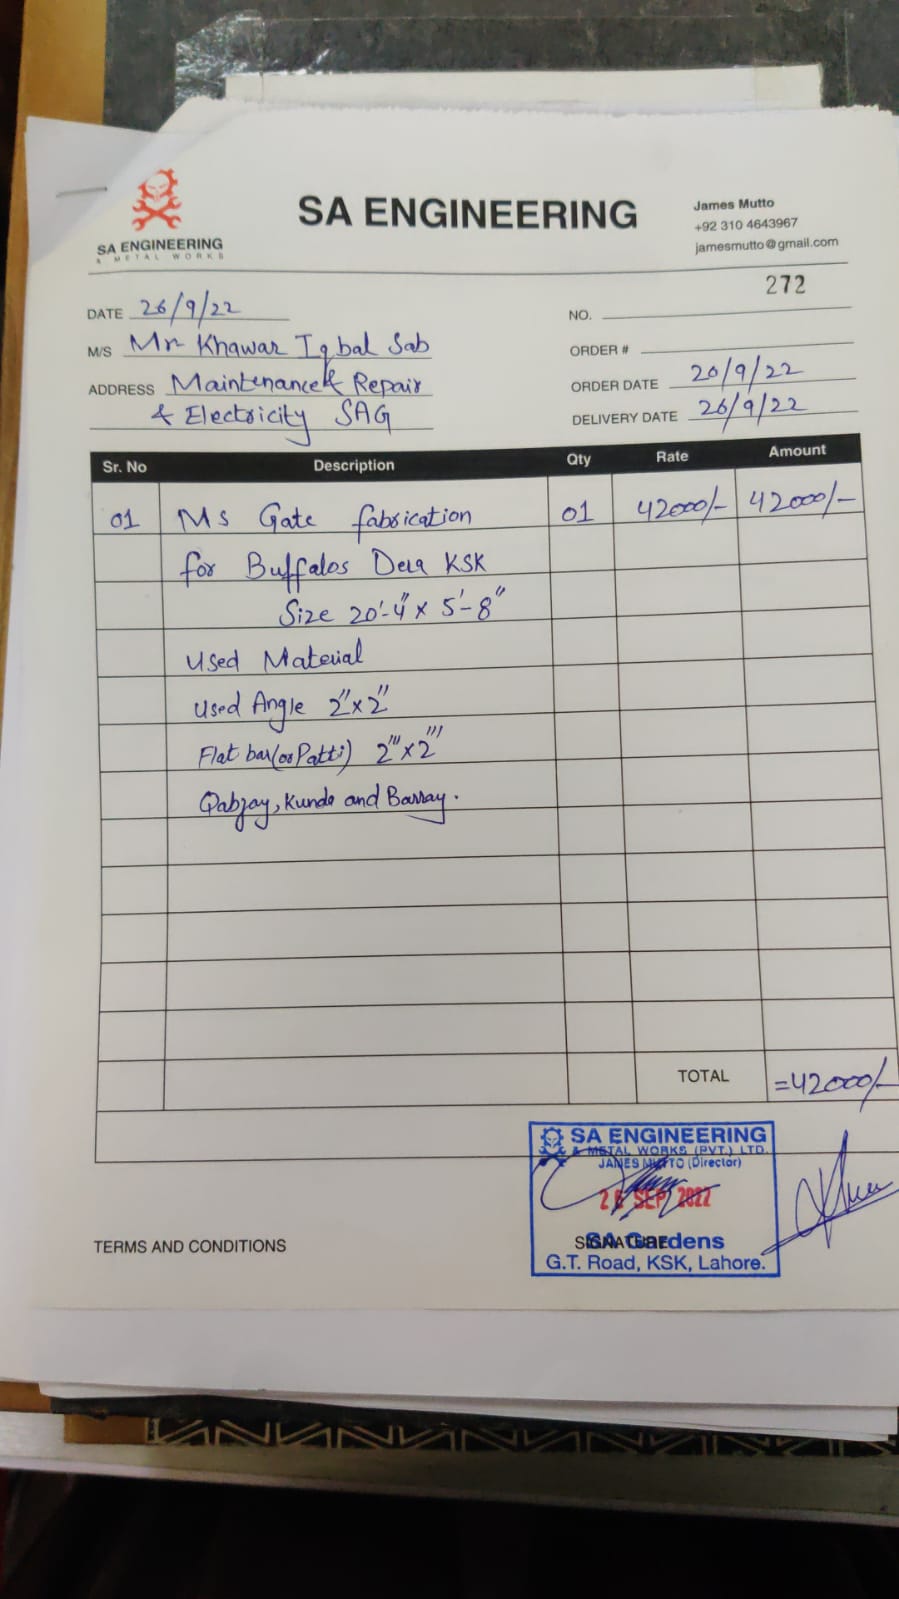 SA ENGINEERING
& METAL WORKS
SA ENGINEERING
James Mutto
+92 310 4643967
jamesmutto@gmail.com
272
DATE 26/9/22
NO.
M/S Mr Khawar Iqbal Sab
ORDER #
ADDRESS Maintenance & Repair
& Electricity SAG
ORDER DATE 20/9/22
DELIVERY DATE 26/9/22
Sr. No Description Qty Rate Amount
01 Ms Gate fabrication 01 42000/- 42000/-
for Buffalos Dera KSK
Size 20'-4" x 5'-8"
Used Material
Used Angle 2"x2"
Flat bar(or Patti) 2'''x2'''
Qabzay, Kunda and Barray.
TOTAL =42000/-
SA ENGINEERING
& METAL WORKS (PVT.) LTD.
JAMES MUTTO (Director)
SEP 2022
SIGNATURE
SA Gardens
G.T. Road, KSK, Lahore.
TERMS AND CONDITIONS